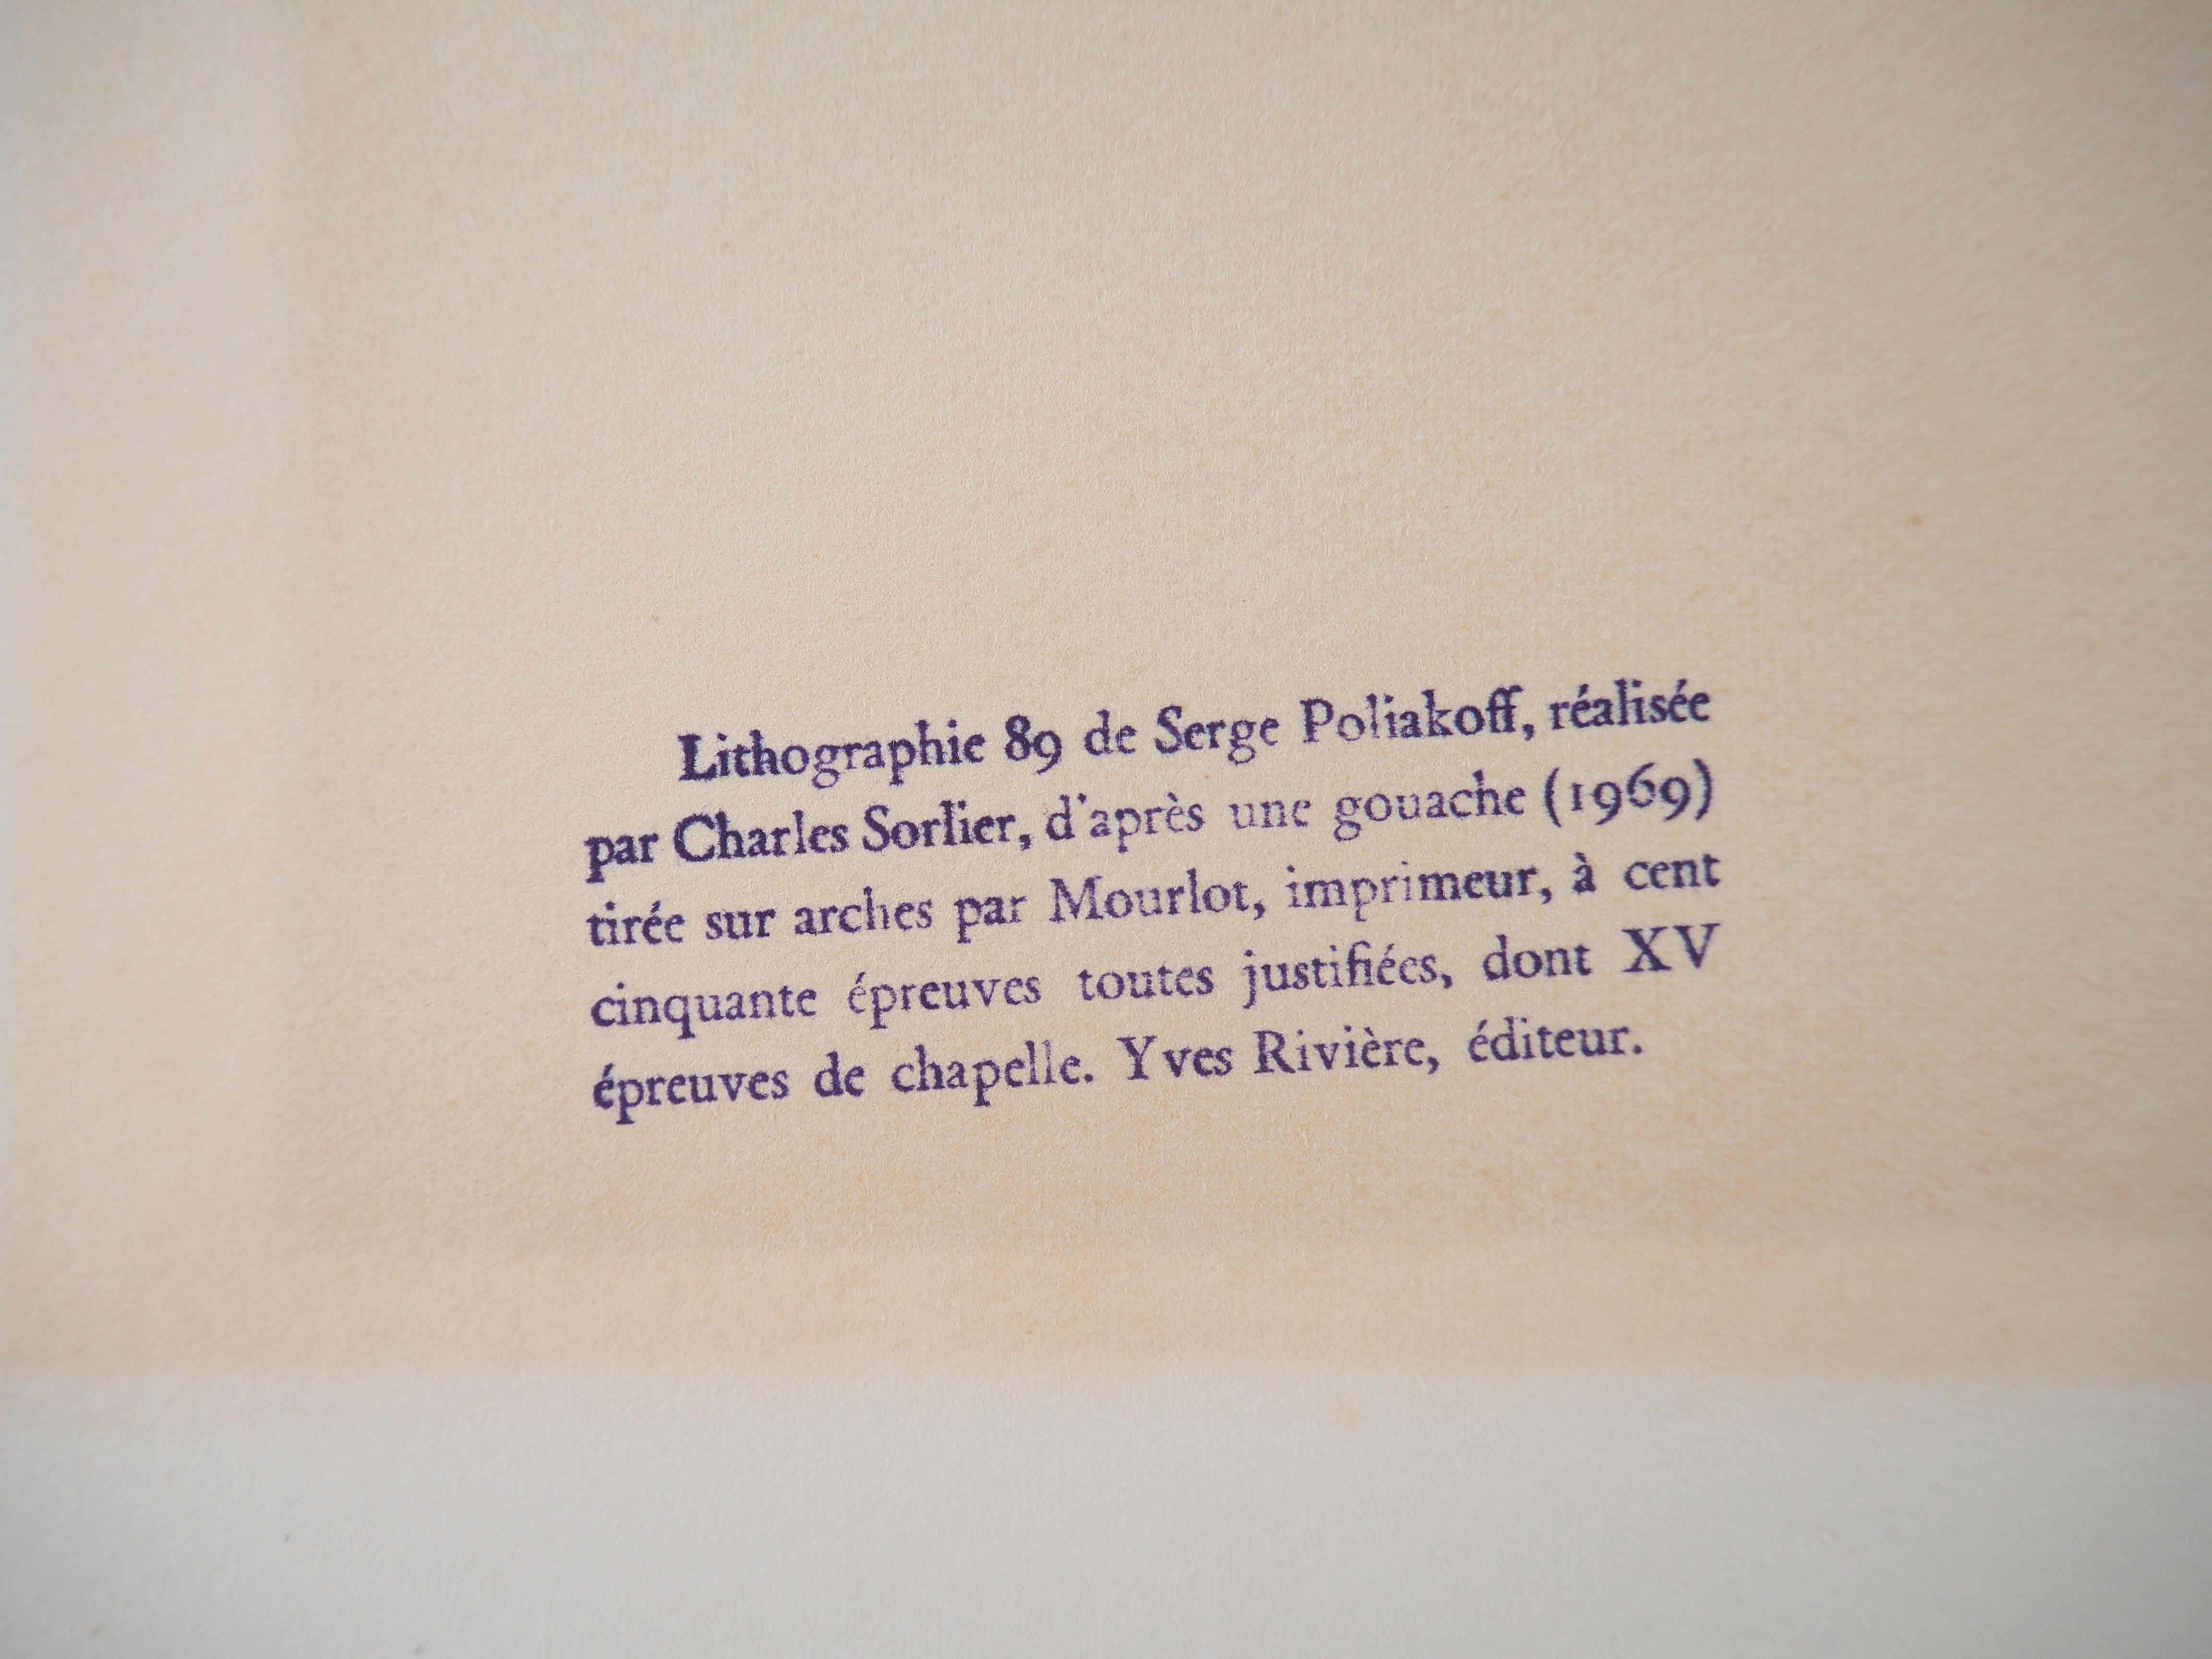 Lithographie 89 de Serge Poliakoff, réalisée
par Charles Sorlier, d'après une gouache (1969)
tirée sur arches par Mourlot, imprimeur, à cent
cinquante épreuves toutes justifiées, dont XV
épreuves de chapelle. Yves Rivière, éditeur.